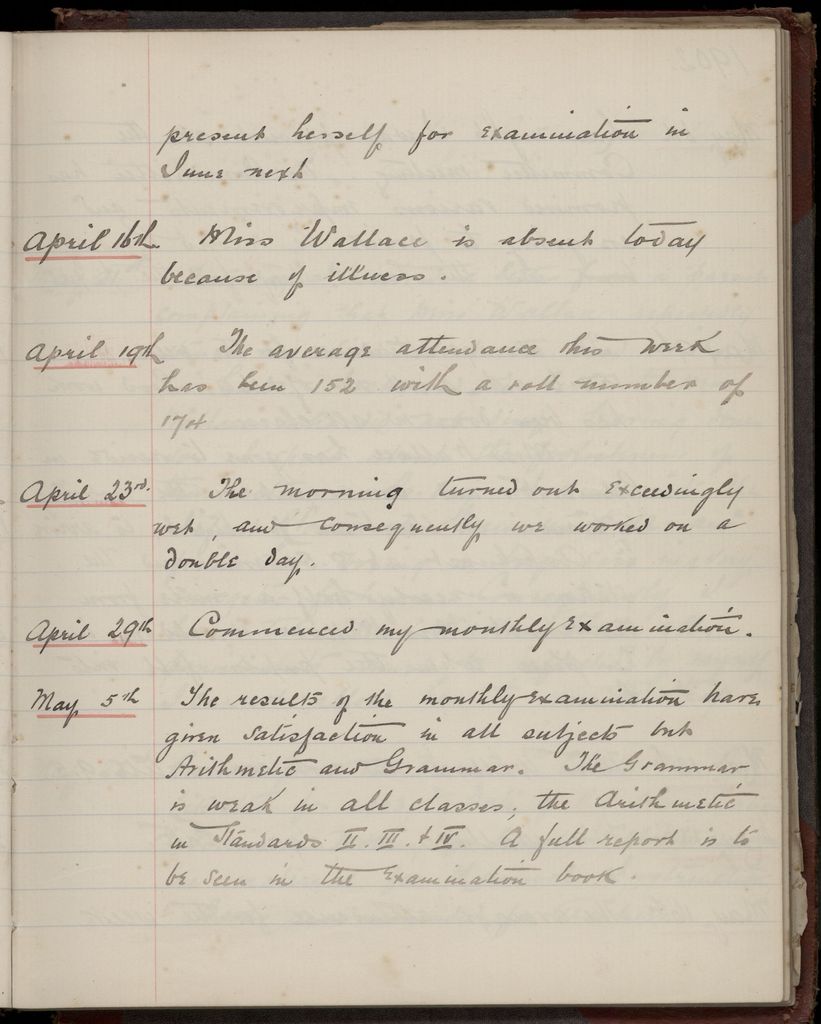 present herself for examination in
June next
April 16th. Miss Wallace is absent today
because of illness.
April 19th The average attendance this week
has been 152 with a roll number of
April 23rd. The morning turned out exceedingly
wet, and consequently we worked on a
double day.
April 29th Commenced my monthly Examination.
May 5th The results of the monthly Examination have
given satisfaction in all subjects but
Arithmetic and Grammar. The Grammar
is weak in all classes; the Arithmetic
in Standards II. III. & IV. A full report is to
be seen in the Examination book.